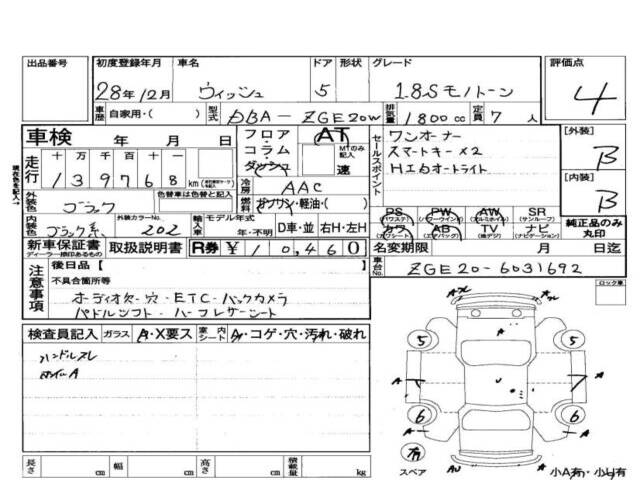 出品番号 初度登録年月 車名 ドア 形状 グレード 評価点
28年12月 ウィッシュ 5 1.8Sモノトーン 4
車歴 自家用・( ) 型式 DBA-ZGE20W 排気量 1800cc 定員 7人
車検 年 月 日 フロア・コラム・ダッシュ AT MTのみ記入 速
セールスポイント ワンオーナー
スマートキー×2
HIDオートライト
[外装] B
[内装] B
現在色を記入→
走行 十万千百十一
139768 km
冷房 AAC
燃料 ガソリン・軽油・( )
外装色 ブラック 色替車は色替と記入
内装色 ブラック系 外装カラーNo. 202 輸入車 モデル年式 年・不明 D車・並 右H・左H
PS (パワステ) PW (パワーウインド) AW (アルミホイル) SR (サンルーフ)
カワ (カワシート) AB (エアバッグ) TV (地デジ) ナビ (ナビゲーション)
純正品のみ丸印
新車保証書 ディーラー捺印あるもの 取扱説明書 R券 ¥10,460 名変期限 月 日迄
注意事項 後日品【 】 車台No. ZGE20-6031692
不具合箇所等 ロック車
オーディオ欠・穴・ETC・バックカメラ
パドルシフト・ハーフレザーシート
検査員記入 ガラス A・X要ス 室内シート A・コゲ・穴・汚れ・破れ
ハンドルスレ
ホイルA
5 5
A A
6 6
有
スペア AU A 小A有・小U有
長さ cm 幅 cm 高さ cm 積載量 kg